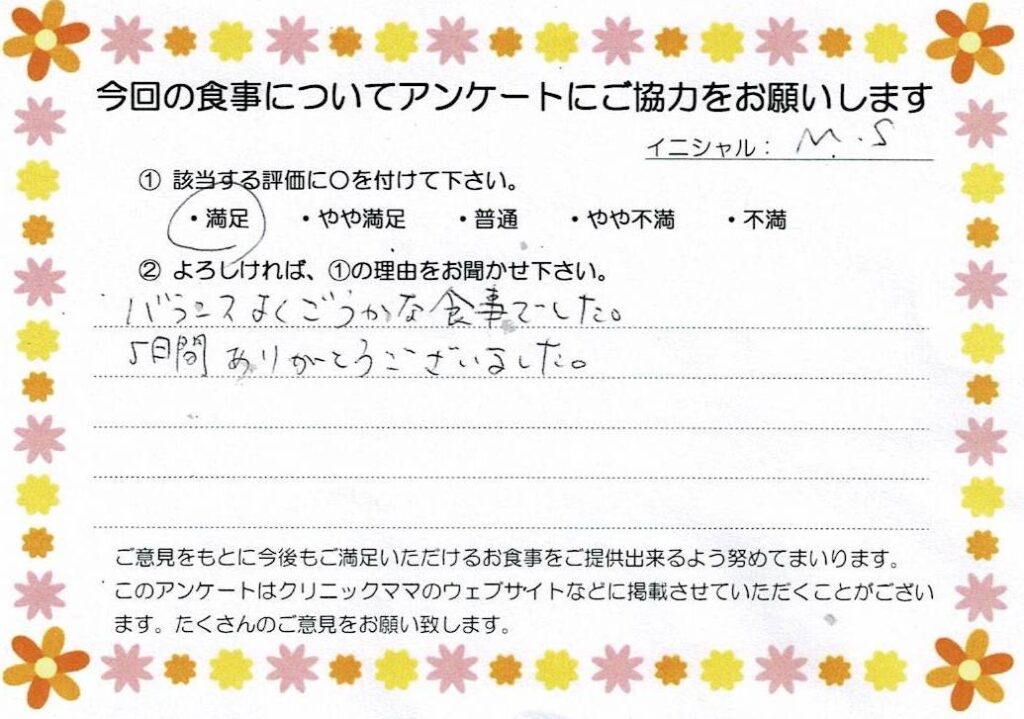 今回の食事についてアンケートにご協力をお願いします
イニシャル： M.S
① 該当する評価に〇を付けて下さい。
・満足 ・やや満足 ・普通 ・やや不満 ・不満
② よろしければ、①の理由をお聞かせ下さい。
バランスよくごうかな食事でした。
5日間ありがとうございました。
ご意見をもとに今後もご満足いただけるお食事をご提供出来るよう努めてまいります。
このアンケートはクリニックママのウェブサイトなどに掲載させていただくことがござい
ます。たくさんのご意見をお願い致します。